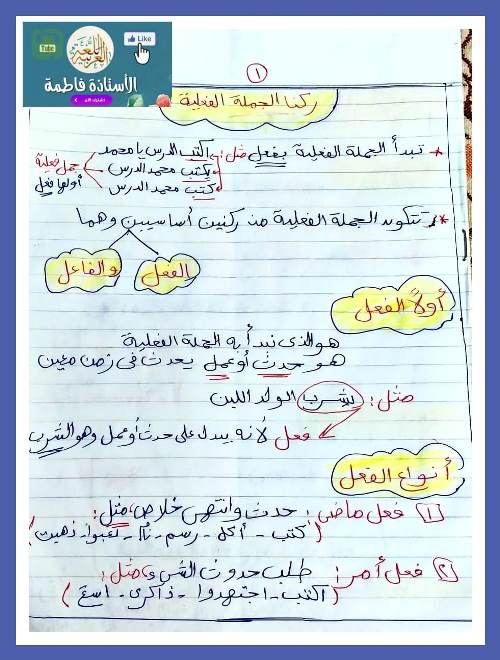 Tube
اللغة العربية
Like
الأستاذة فاطمة
اشترك الآن
١
ركنا الجملة الفعلية
* تبدأ الجملة الفعلية بفعل مثل: اكتب الدرس يا محمد
يكتب محمد الدرس
كتب محمد الدرس
جمل فعلية
أولها فعل
* تتكون الجملة الفعلية من ركنين أساسيين وهما
الفعل والفاعل
أولاً الفعل
هو الذى نبدأ به الجملة الفعلية
هو حدث أو عمل يحدث فى زمن معين
مثل: يشرب الولد اللبن
فعل لأنه يدل على حدث أو عمل وهو الشرب
أنواع الفعل
١ فعل ماضى: حدث وانتهى خلاص مثل:
(كتب - أكل - رسم - نا - لعبوا - ذهبت)
٢ فعل أمر: طلب حدوث الشىء مثل:
(اكتب - اجتهدوا - ذاكرى - اسع)